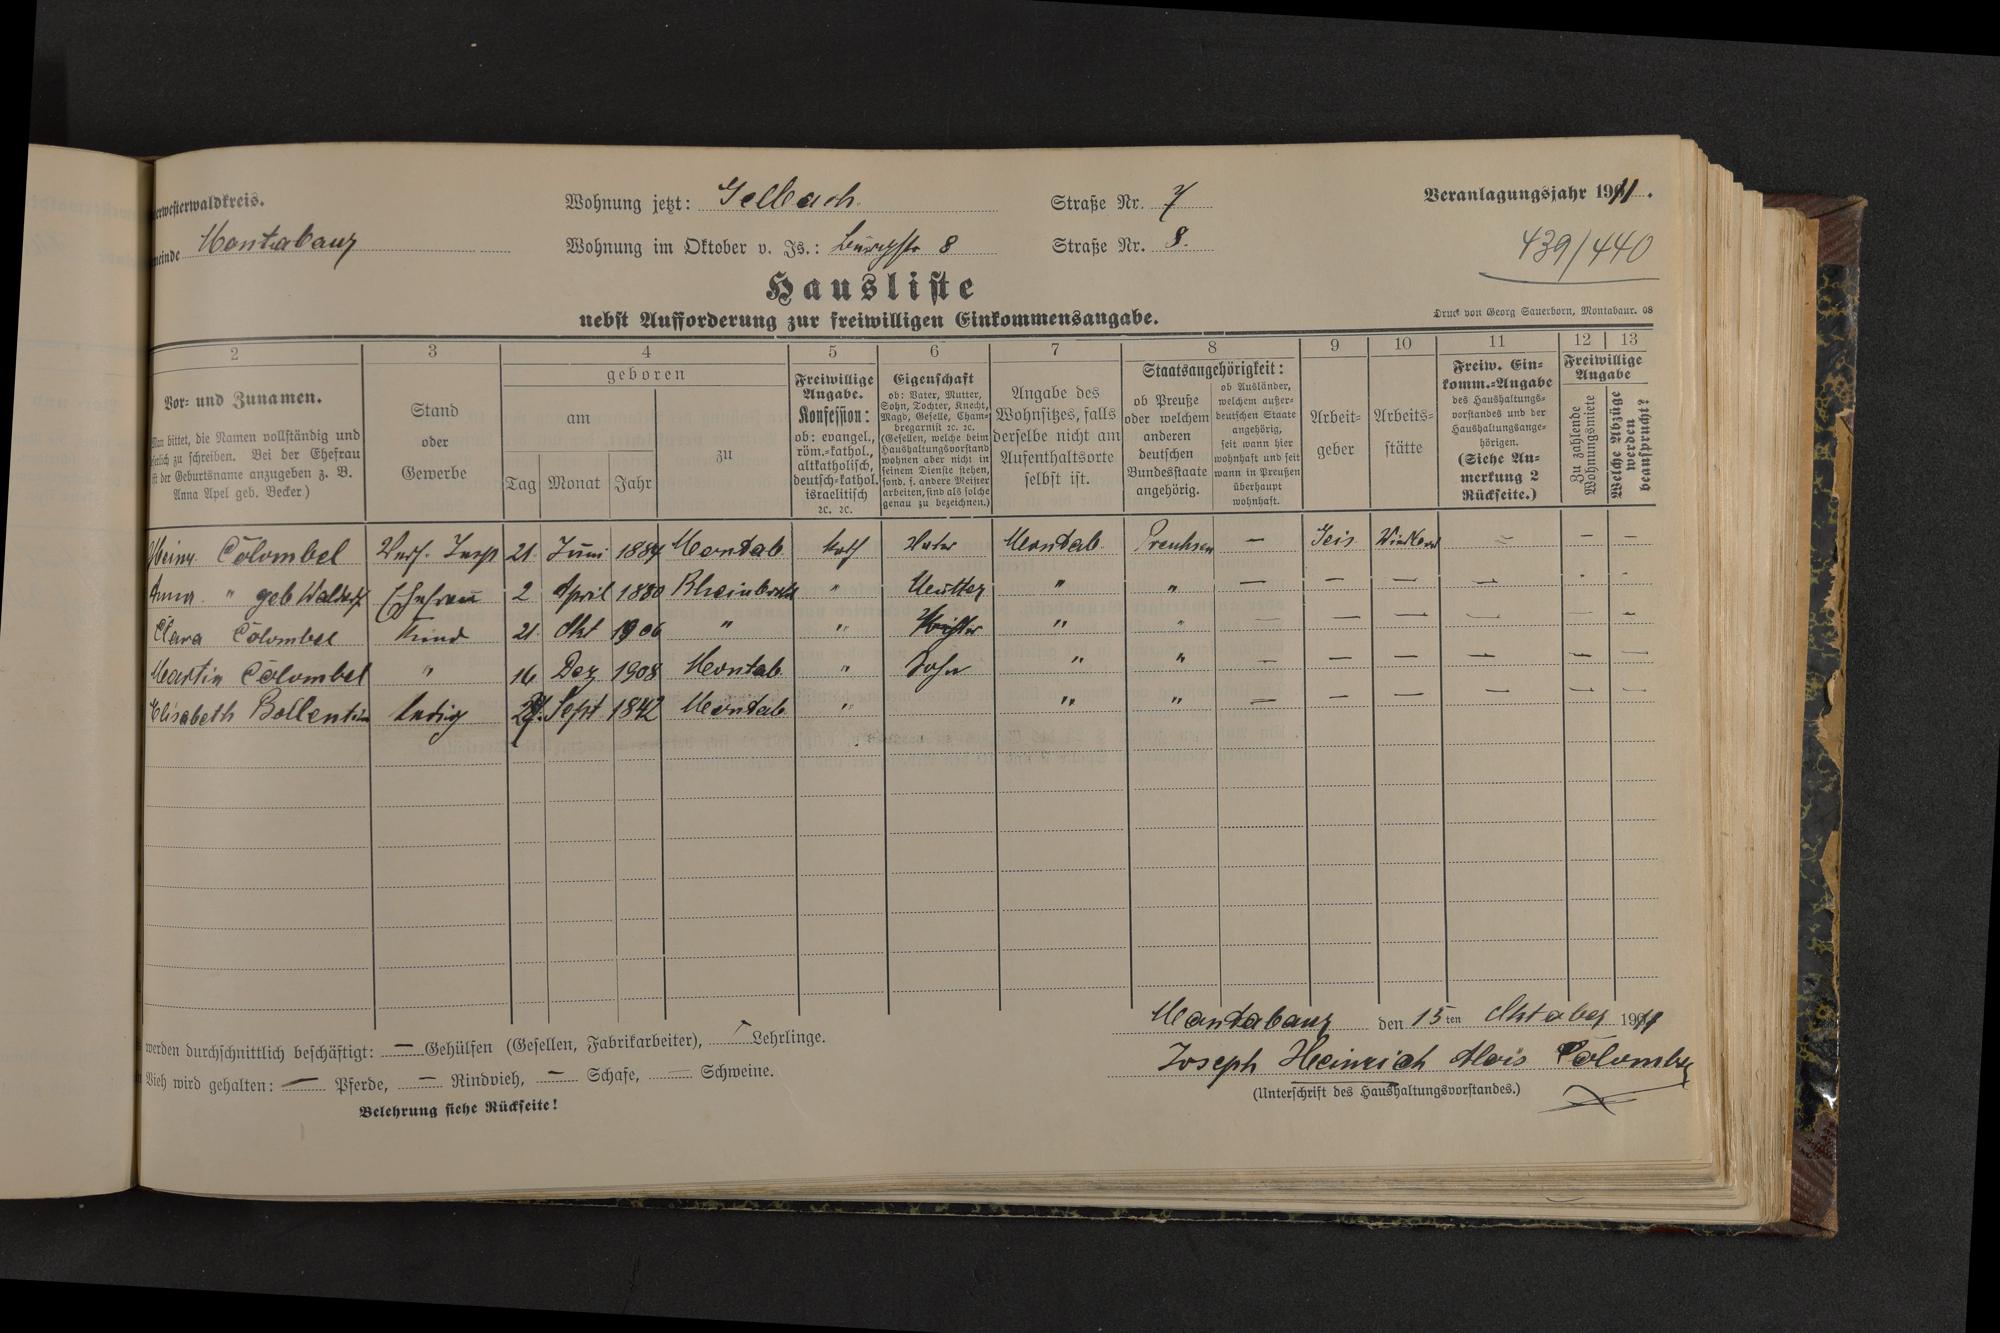 erwesterwaldkreis.
meinde Montabaur
Wohnung jetzt: Gelbach Straße Nr. 7
Wohnung im Oktober v. Js.: 8 Straße Nr. 8.
Veranlagungsjahr 1911.
439/440
Hausliste
nebst Aufforderung zur freiwilligen Einkommensangabe.
Druck von Georg Sauerborn, Montabaur. 08
2 3 4 5 6 7 8 9 10 11 12 13
Vor- und Zunamen.
Man bittet, die Namen vollständig und
zu schreiben. Bei der Ehefrau
ist der Geburtsname anzugeben z. B.
Anna Apel geb. Becker.)
Stand
oder
Gewerbe
geboren
am
zu
Tag Monat Jahr
Freiwillige
Angabe.
Konfession:
ob: evangel.,
röm.-kathol.,
altkatholisch,
deutsch-kathol.
israelitisch
ꝛc. ꝛc.
Eigenschaft
ob: Vater, Mutter,
Sohn, Tochter, Knecht,
Magd, Geselle, Cham-
bregarnist ꝛc. ꝛc.
(Gesellen, welche beim
Haushaltungsvorstand
wohnen aber nicht in
seinem Dienste stehen,
sond. f. andere Meister
arbeiten, sind als solche
genau zu bezeichnen.)
Angabe des
Wohnsitzes, falls
derselbe nicht am
Aufenthaltsorte
selbst ist.
Staatsangehörigkeit:
ob Preuße
oder welchem
anderen
deutschen
Bundesstaate
angehörig.
ob Ausländer,
welchem außer-
deutschen Staate
angehörig,
seit wann hier
wohnhaft und seit
wann in Preußen
überhaupt
wohnhaft.
Arbeit-
geber
Arbeits-
stätte
Freiw. Ein-
komm.-Angabe
des Haushaltungs-
vorstandes und der
Haushaltungsange-
hörigen.
(Siehe An-
merkung 2
Rückseite.)
Freiwillige
Angabe
Zu zahlende
Wohnungsmiete
Welche Abzüge
werden
beansprucht?
Heinr. Colombel 21. Juni 1884 Montab. kath Vater Montab. Preuhsen — Geis — — —
Anna " geb Ehefrau 2 April 1880 " Mutter " " — — — — - -
Clara Colombel Kind 21. Okt 1906 " " " " — — — — — —
Martin Colombel " 16 Dez 1908 Montab. " Sohn " " — — — — — —
Elisabeth ledig Sept 1842 Montab " " " — — — — — —
werden durchschnittlich beschäftigt: — Gehülfen (Gesellen, Fabrikarbeiter), Lehrlinge.
Vieh wird gehalten: — Pferde, — Rindvieh, — Schafe, — Schweine.
Belehrung siehe Rückseite!
Montabaur den 15ten Oktober 1911
Joseph Heinrich Alois Colombel
(Unterschrift des Haushaltungsvorstandes.)